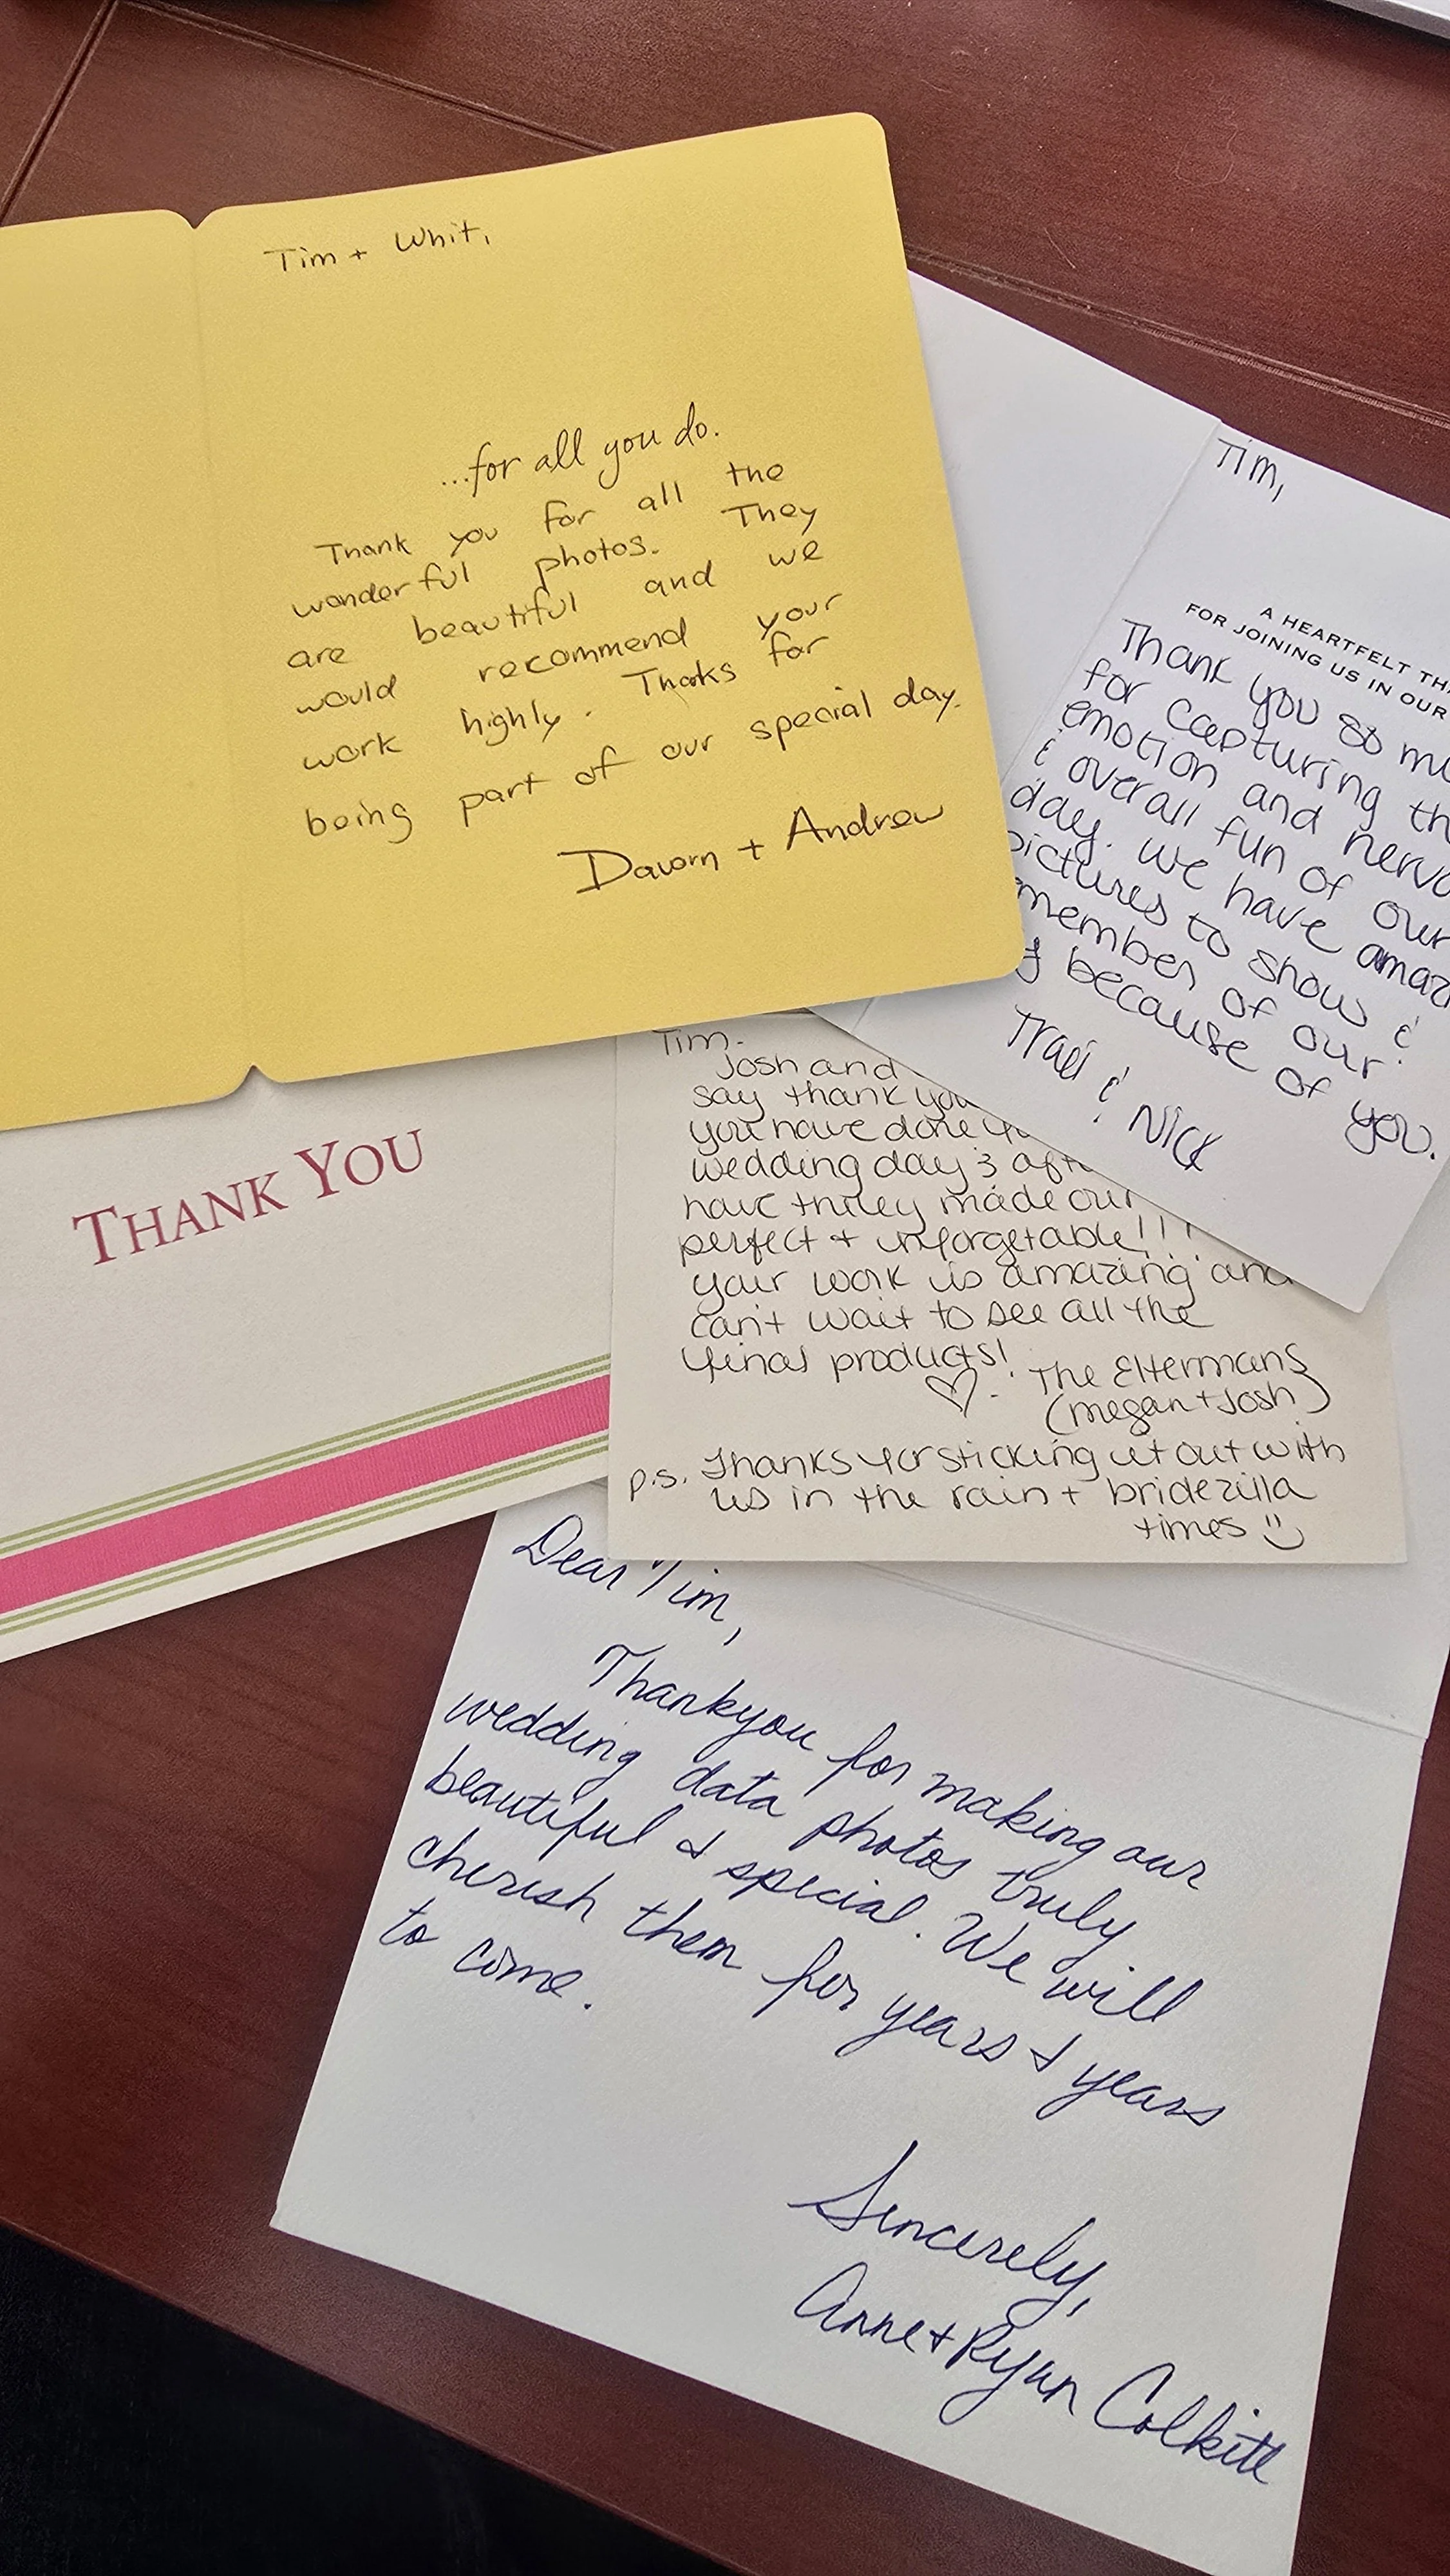 Tim + Whit,
...for all you do.
Thank you for all the
wonderful photos. They
are beautiful and we
would recommend your
work highly. Thanks for
being part of our special day.
Dawn + Andrew
Tim,
A HEARTFELT TH
FOR JOINING US IN OUR
Thank you so mu
for capturing th
emotion and nervo
& overall fun of our
day. We have amaz
pictures to show &
member of our
because of you.
Traci & Nick
THANK YOU
Tim-
Josh and
say thank you
you have done
wedding day & aft
have truley made our
perfect + unforgetable!!!
your work is amazing and
can't wait to see all the
final products!
The Eltermans
(megan + Josh)
p.s. Thanks for sticking it out with
us in the rain + bridezilla
times
Dear Tim,
Thankyou for making our
wedding data photos truly
beautiful & special. We will
cherish them for years & years
to come.
Sincerely,
Anne + Ryan Colkitt